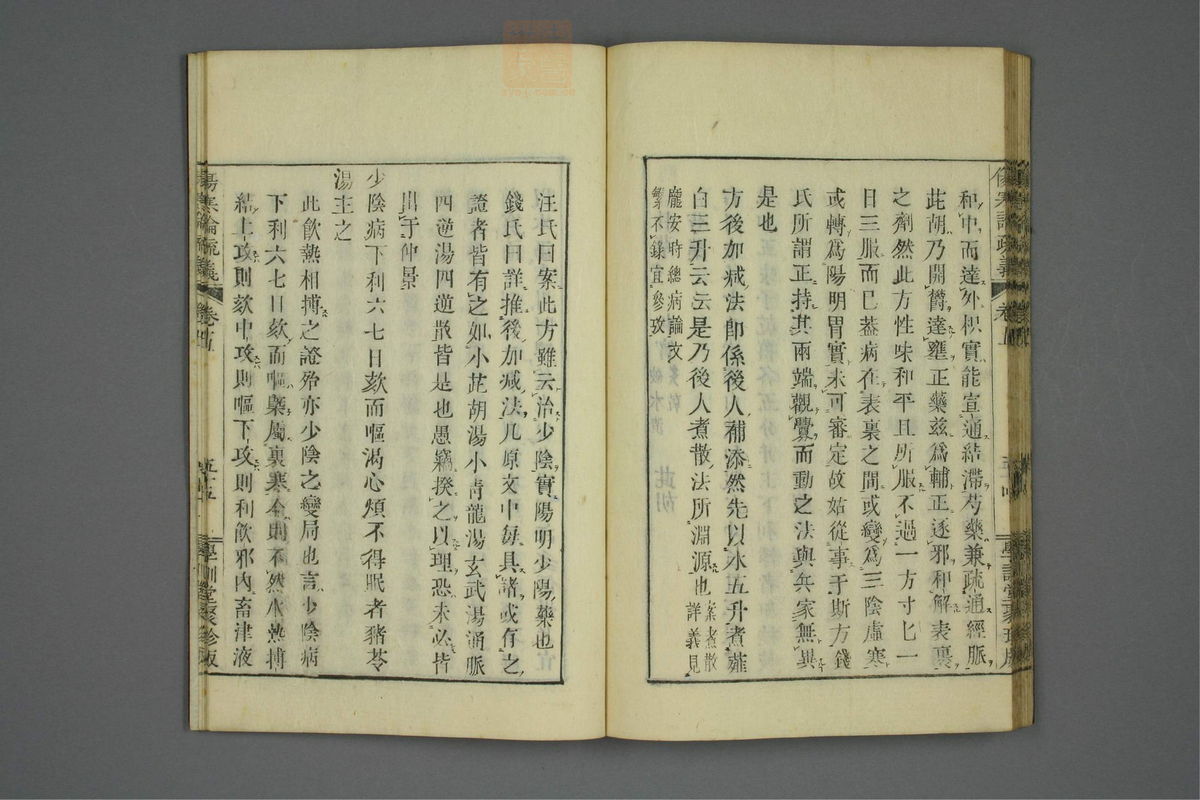 和中而達外枳實能宣通結滯芍藥兼疏通經脈
茈胡乃開欝達壅正藥茲爲輔正逐邪和解表裏
之劑然此方性味和平且所服不過一方寸匕一
日三服而已葢病在表裏之間或變爲三陰虛寒
或轉爲陽明胃實未可審定故姑從事于斯方錢
氏所謂正持其兩端觀釁而動之法與兵家無異
是也
方後加減法卽係後人補添然先以水五升煮薤
白三升云云是乃後人煮散法所淵源也案煮散詳義見
龐安時總病論文
繁不錄宜參攷
傷寒論疏義
汪氏曰案此方雖云治少陰實陽明少陽藥也
錢氏曰詳推後加減法凡原文中每具諸或有之
證者皆有之如小茈胡湯小靑龍湯玄武湯通脈
四逆湯四逆散皆是也愚竊揆之以理恐未必皆
出于仲景
少陰病下利六七日欬而嘔渴心煩不得眠者豬苓
湯主之
此飮熱相搏之證殆亦少陰之變局也言少陰病
下利六七日欬而嘔藥屬裏寒今則不然水熱搏
結上攻則欬中攻則嘔下攻則利飮邪內畜津液
傷寒論疏義 卷五 五十五 學訓堂聚珍版